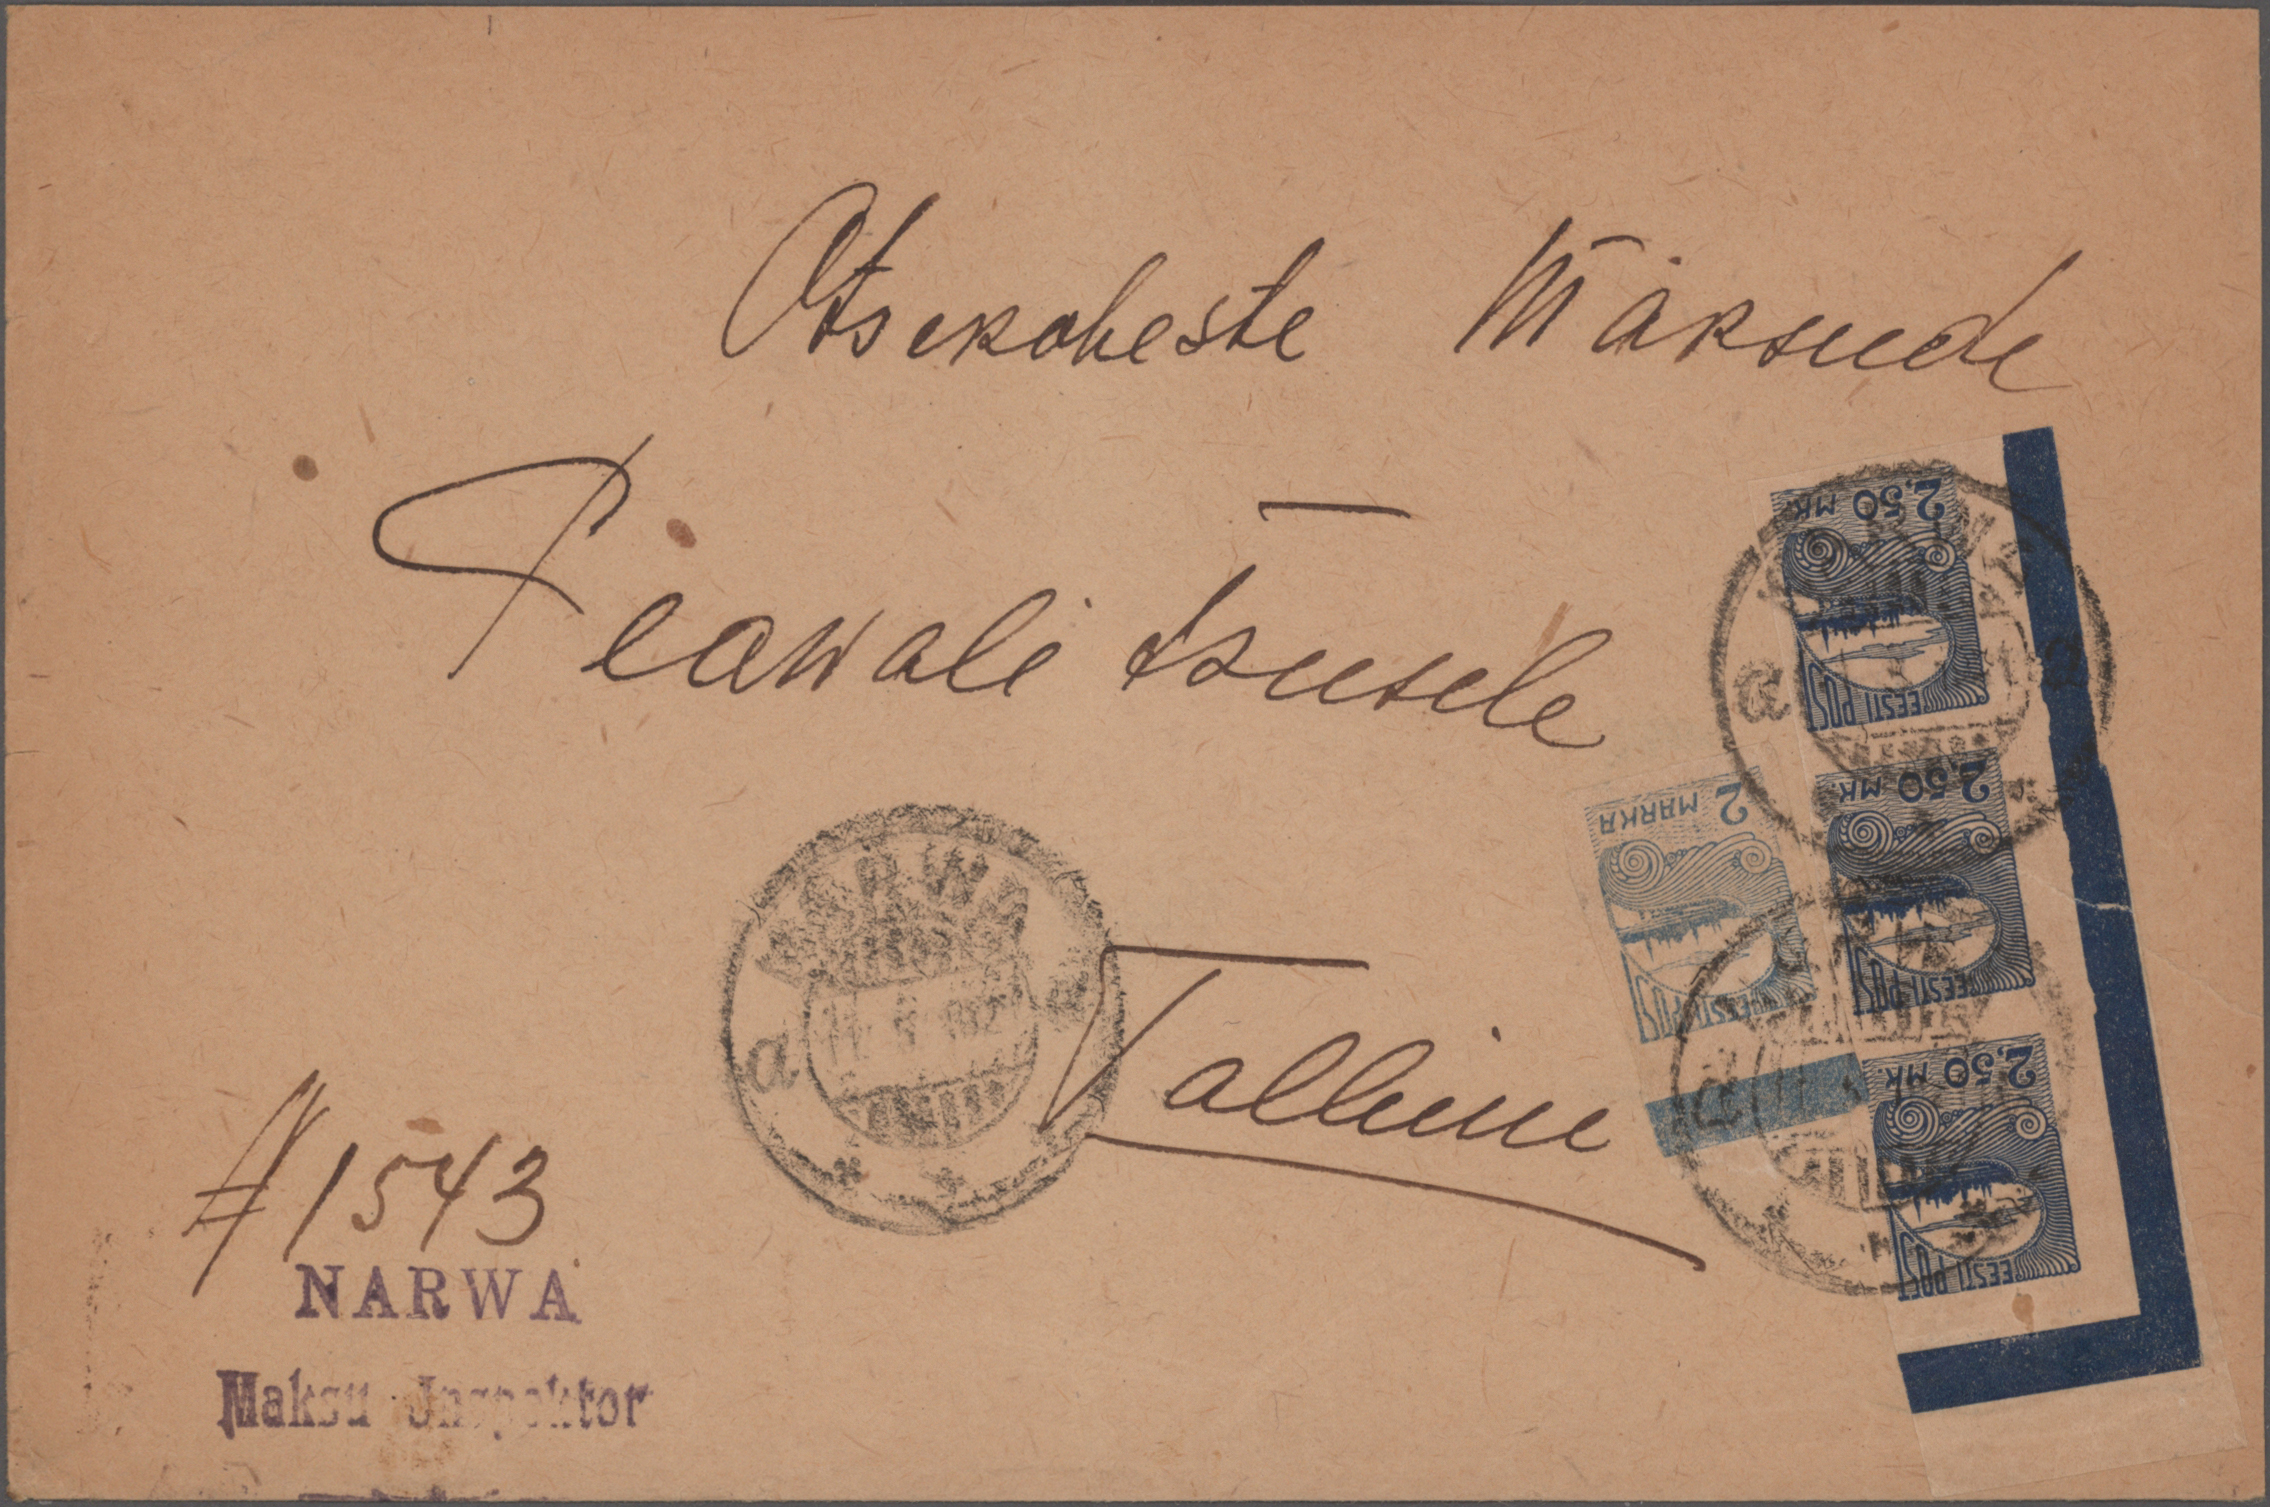 Otsekoheste Maksude
Peawalitsusele
Tallinn
#1543
NARWA
Maksu Inspektor
NARWA
a 11. 5
2,50 MK.
EESTI POST
2 MARKA
EESTI POST
2,50 MK.
EESTI POST
2,50 MK.
EESTI POST